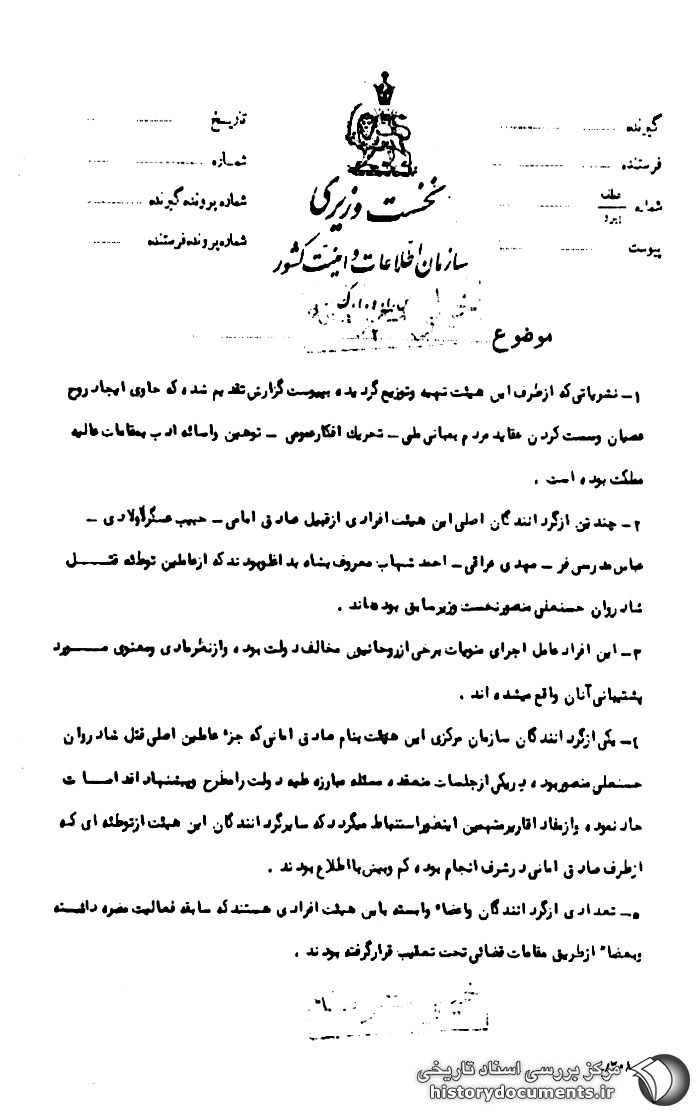 گیرنده
فرستنده
شماره عطف پیرو
پیوست
تاریخ
شماره
شماره پرونده گیرنده
شماره پرونده فرستنده
نخست وزیری
سازمان اطلاعات و امنیت کشور
س.ا.و.ا.ک
موضوع
۲
۱- نشریاتی که ازطرف این هیئت تهیه وتوزیع گردیده بپیوست گزارش تقدیم شده که حاوی ایجاد روح
عصیان وسست کردن عقاید مردم بمبانی ملی - تحریك افکارعمومی - توهین واسائه ادب بمقامات عالیه
مملکت بوده است .
۲- چند تن ازگردانندگان اصلی این هیئت افرادی ازقبیل صادق امامی - حبیب عسگرأولادی -
عباس مدرسی فر - مهدی عراقی - احمد شهاب معروف بشاه بداظوبودند که ازعاملین توطئه قتل
شادروان حسنعلی منصورنخست وزیرسابق بوده‌اند .
۳- این افراد عامل اجرای منویات برخی ازروحانیون مخالف دولت بوده وازنظرمادی ومعنوی مورد
پشتیبانی آنان واقع میشده اند .
٤- یکی ازگردانندگان سازمان مرکزی این هیئت بنام صادق امانی که جزء عاملین اصلی قتل شادروان
حسنعلی منصوربوده دریکی ازجلسات منعقده مسئله مبارزه علیه دولت رامطرح وپیشنهاد اقدامات
حاد نموده وازمفاد اقاریرمتهمین اینطوراستنباط میگردد که سایرگردانندگان این هیئت ازتوطئه ای که
ازطرف صادق امانی درشرف انجام بوده کم وبیش بااطلاع بودند .
۵- تعدادی ازگردانندگان واعضاء وابسته باین هیئت افرادی هستند که سابقه فعالیت مضره داشته
وبعضاً ازطریق مقامات قضائی تحت تعقیب قرارگرفته بودند .
مرکز بررسی اسناد تاریخی
historydocuments.ir